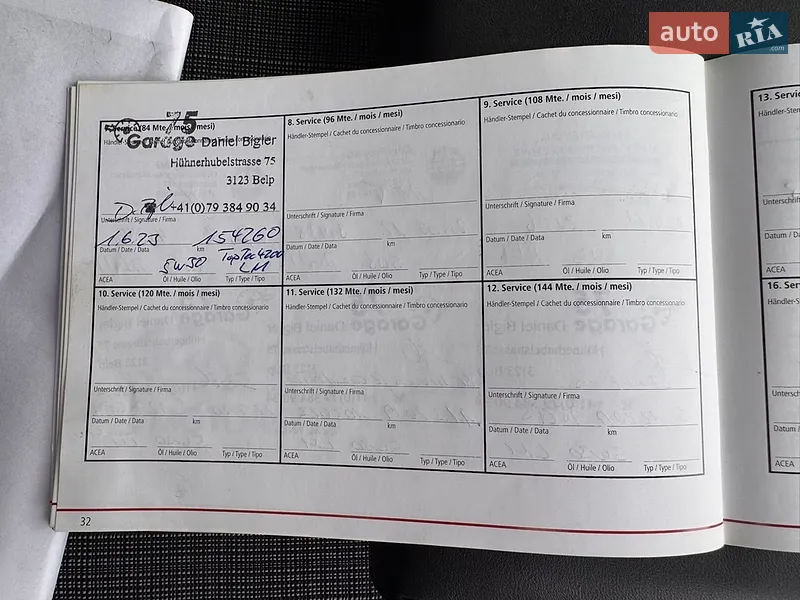 auto RIA .com
7. Service (84 Mte. / mois / mesi)
Garage Daniel Bigler
Hühnerhubelstrasse 75
3123 Belp
+41(0)79 384 90 34
Unterschrift / Signature / Firma
1.6.23 154260
Datum / Date / Data km
5W30 TopTec 4200 LM
ACEA Öl / Huile / Olio Typ / Type / Tipo
8. Service (96 Mte. / mois / mesi)
Händler-Stempel / Cachet du concessionnaire / Timbro concessionario
Unterschrift / Signature / Firma
Datum / Date / Data km
ACEA Öl / Huile / Olio Typ / Type / Tipo
9. Service (108 Mte. / mois / mesi)
Händler-Stempel / Cachet du concessionnaire / Timbro concessionario
Unterschrift / Signature / Firma
Datum / Date / Data km
ACEA Öl / Huile / Olio Typ / Type / Tipo
10. Service (120 Mte. / mois / mesi)
Händler-Stempel / Cachet du concessionnaire / Timbro concessionario
Unterschrift / Signature / Firma
Datum / Date / Data km
ACEA Öl / Huile / Olio Typ / Type / Tipo
11. Service (132 Mte. / mois / mesi)
Händler-Stempel / Cachet du concessionnaire / Timbro concessionario
Unterschrift / Signature / Firma
Datum / Date / Data km
ACEA Öl / Huile / Olio Typ / Type / Tipo
12. Service (144 Mte. / mois / mesi)
Händler-Stempel / Cachet du concessionnaire / Timbro concessionario
Unterschrift / Signature / Firma
Datum / Date / Data km
ACEA Öl / Huile / Olio Typ / Type / Tipo
32
13. Servic
Händler-Stem
Unterschrift
Datum / Da
ACEA
16. Ser
Händler-St
Untersch
Datum /
ACEA